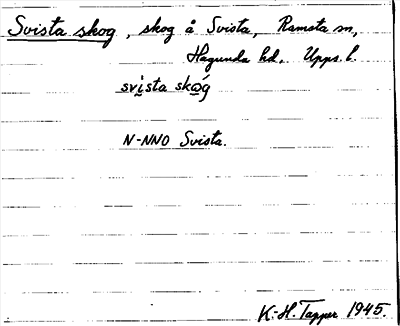 Svista skog, skog å Svista, Ramsta sn,
Hagunda hd. Upps. l.
svista skóg
N-NNO Svista.
K.-H. Tapper 1945.